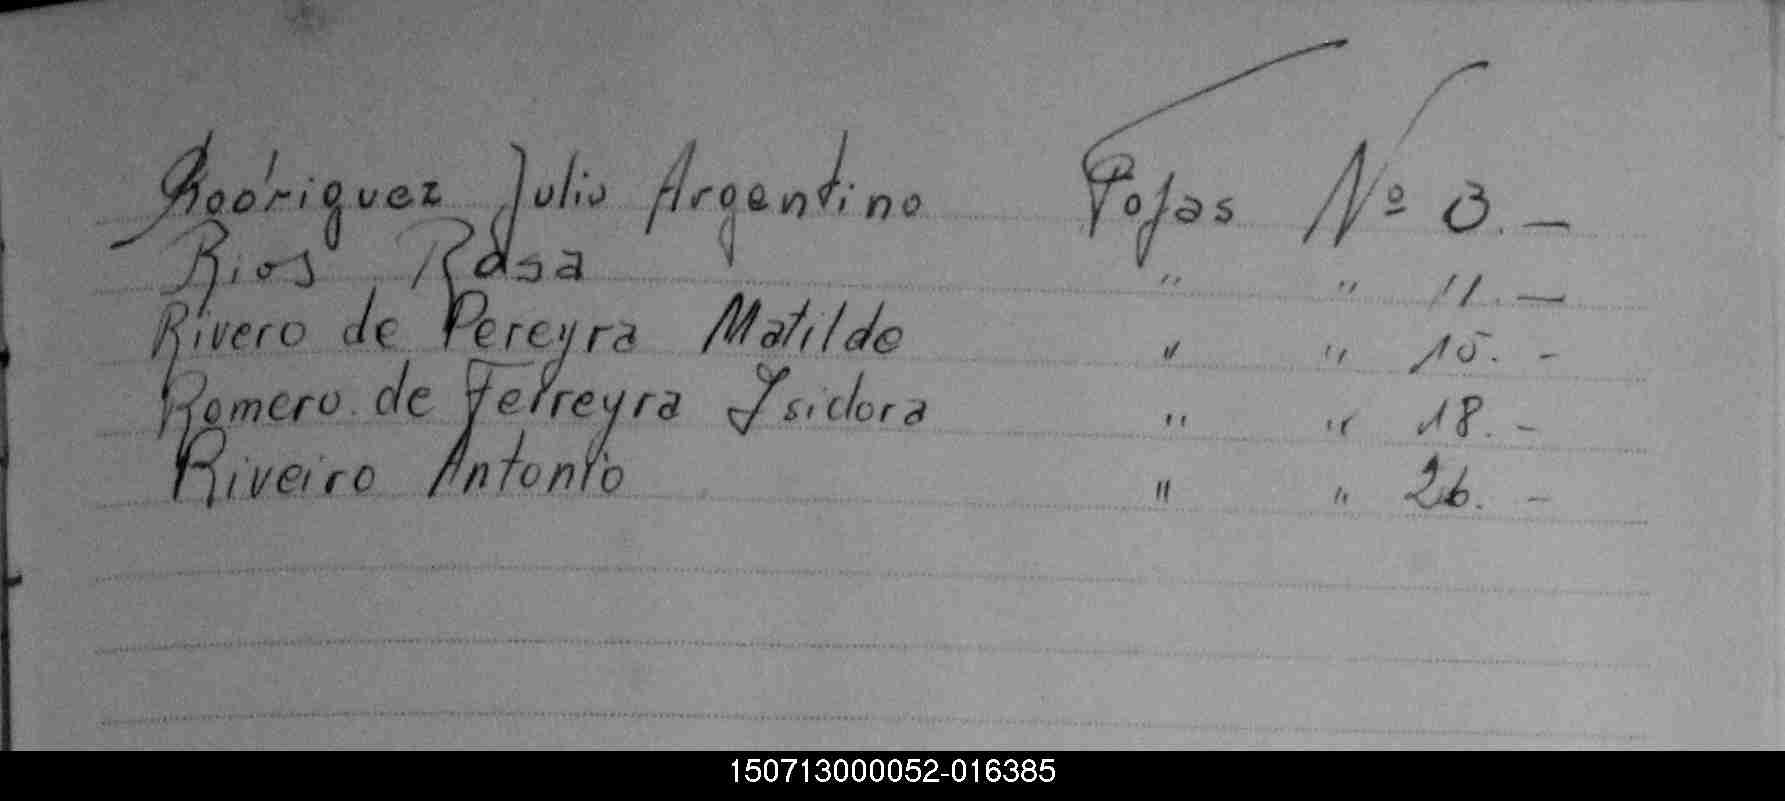 Rodriguez Julio Argentino Fojas Nº 3. —
Rios Rosa " " 11. —
Rivero de Pereyra Matilde " " 15. -
Romero de Ferreyra Isidora " " 18. -
Riveiro Antonio " " 26. -
150713000052-016385